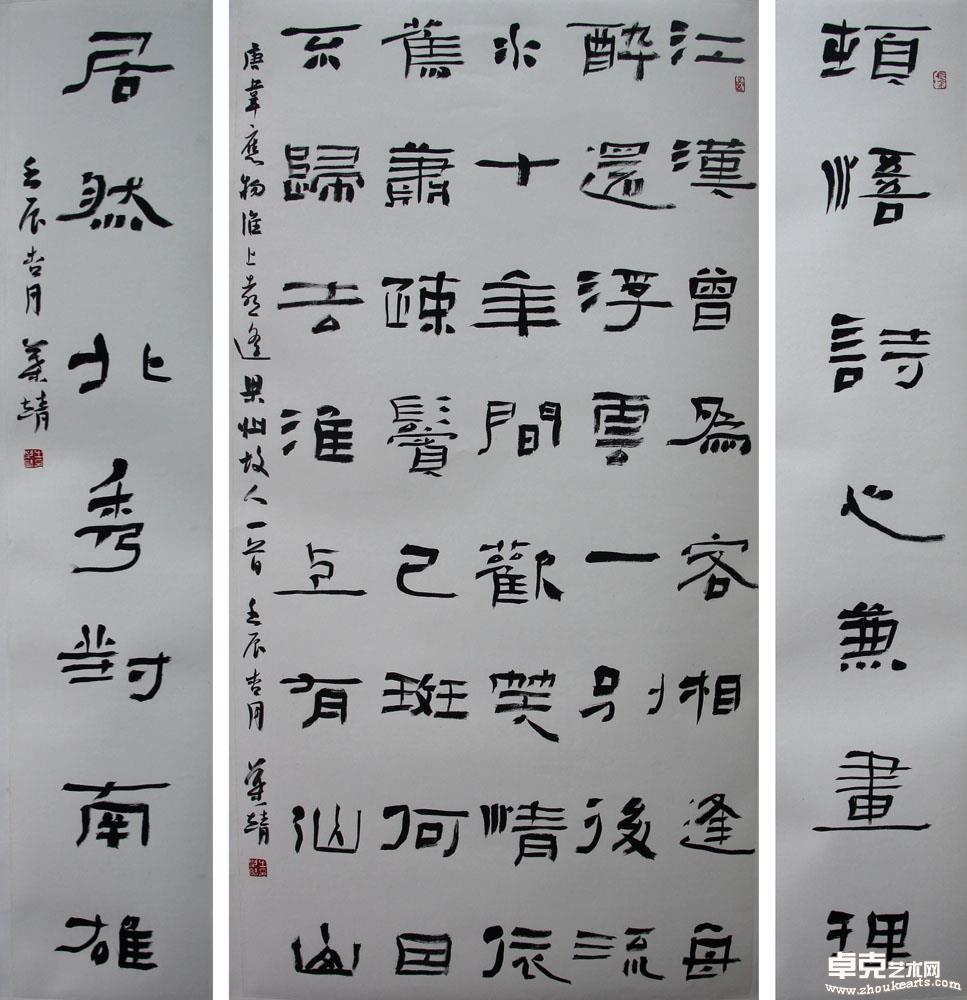 頓悟詩心兼畫理
江漢曾為客相逢每
醉還浮雲一別後流
水十年間歡笑情依
舊蕭疎鬢已斑何因
不歸去淮上有山
唐韋應物淮上喜逢梁州故人一首 壬辰杏月 靖
居然北秀對南雄
壬辰杏月 靖
卓克艺术网
www.zhoukearts.com